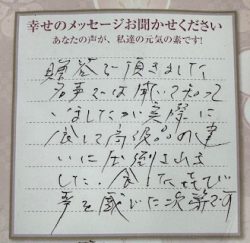 幸せのメッセージお聞かせください
あなたの声が、私達の元気の素です!
贈答で頂きました
は戴いて知って
いましたが実際に
食して高級品の違
いに圧倒されま
した。食した喜び
幸を感じた次第です